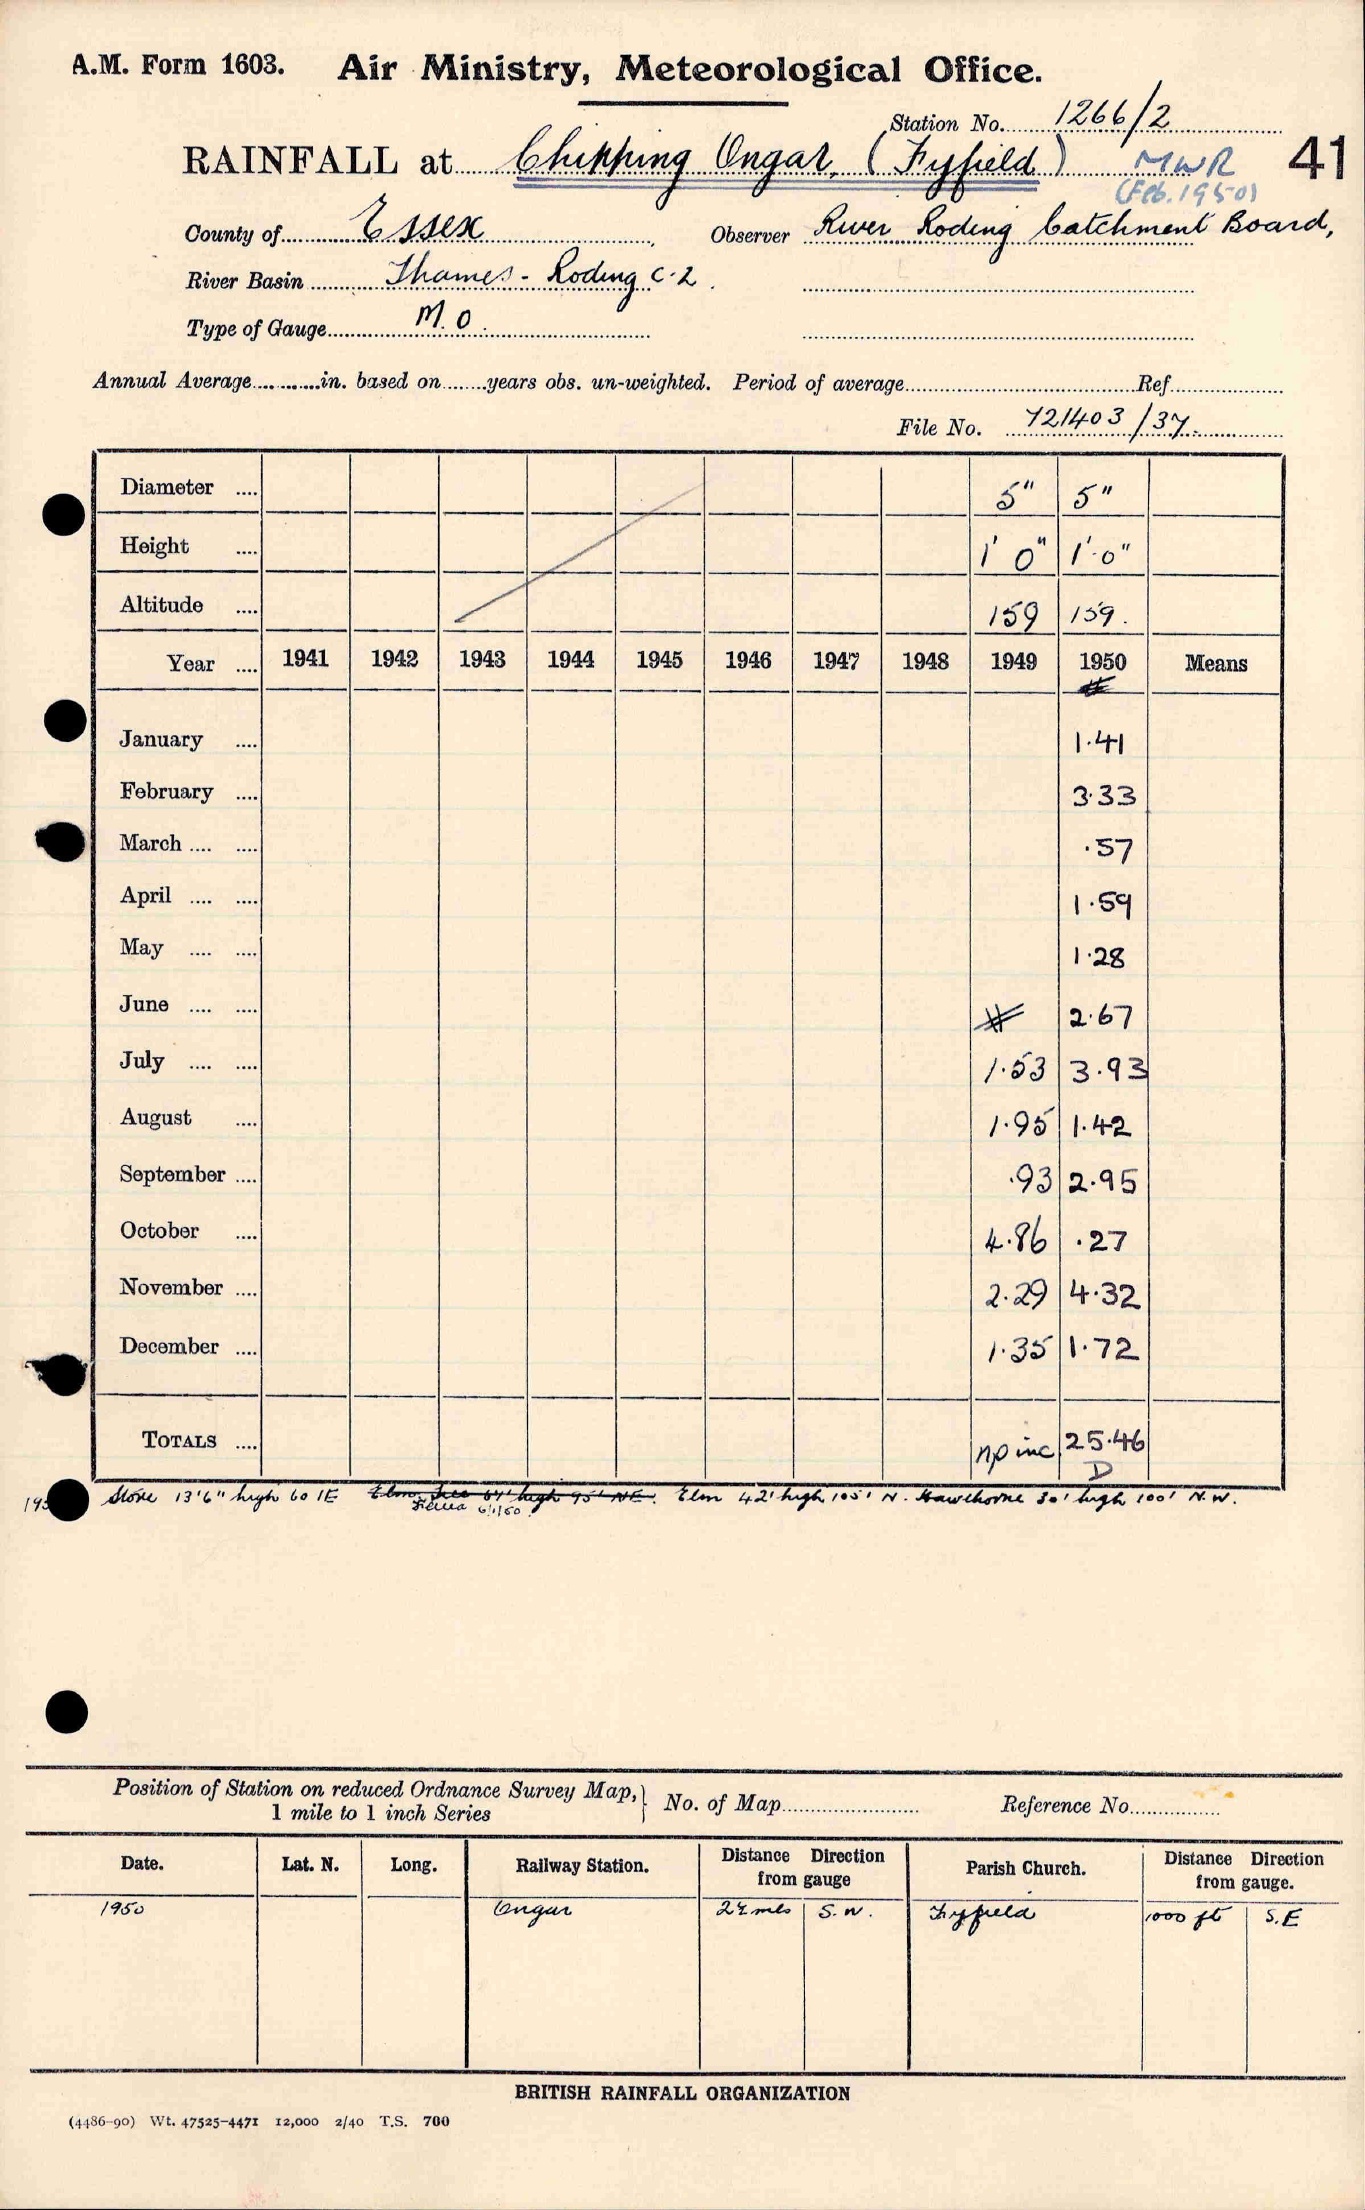 A.M. Form 1603. Air Ministry, Meteorological Office.
Station No. 1266/2
RAINFALL at Chipping Ongar, (Fyfield) MWR 41
(Feb. 1950)
County of Essex, Observer River Roding Catchment Board,
River Basin Thames - Roding C.2.
Type of Gauge M.O.
Annual Average in. based on years obs. un-weighted. Period of average Ref.
File No. 721403/37.
Diameter .... 5" 5"
Height .... 1' 0" 1'·0"
Altitude .... 159 159.
Year .... 1941 1942 1943 1944 1945 1946 1947 1948 1949 1950 Means
January .... 1·41
February .... 3·33
March .... .... ·57
April .... .... 1·59
May .... .... 1·28
June .... .... 2·67
July .... .... 1·53 3·93
August .... 1·95 1·42
September .... ·93 2·95
October .... 4·86 ·27
November .... 2·29 4·32
December .... 1·35 1·72
TOTALS .... np inc 25·46
D
Store 13'6" high 60 1E Elm Tree 67' high 95' NE. Elm 42' high 105' N. Hawthorne 30' high 100' N.W.
6/1/50
Position of Station on reduced Ordnance Survey Map, 1 mile to 1 inch Series } No. of Map Reference No.
Date. Lat. N. Long. Railway Station. Distance Direction from gauge Parish Church. Distance Direction from gauge.
1950 Ongar mls S.W. Fyfield 1000 ft S.E
BRITISH RAINFALL ORGANIZATION
(4486-90) Wt. 47525-4471 12,000 2/40 T.S. 700